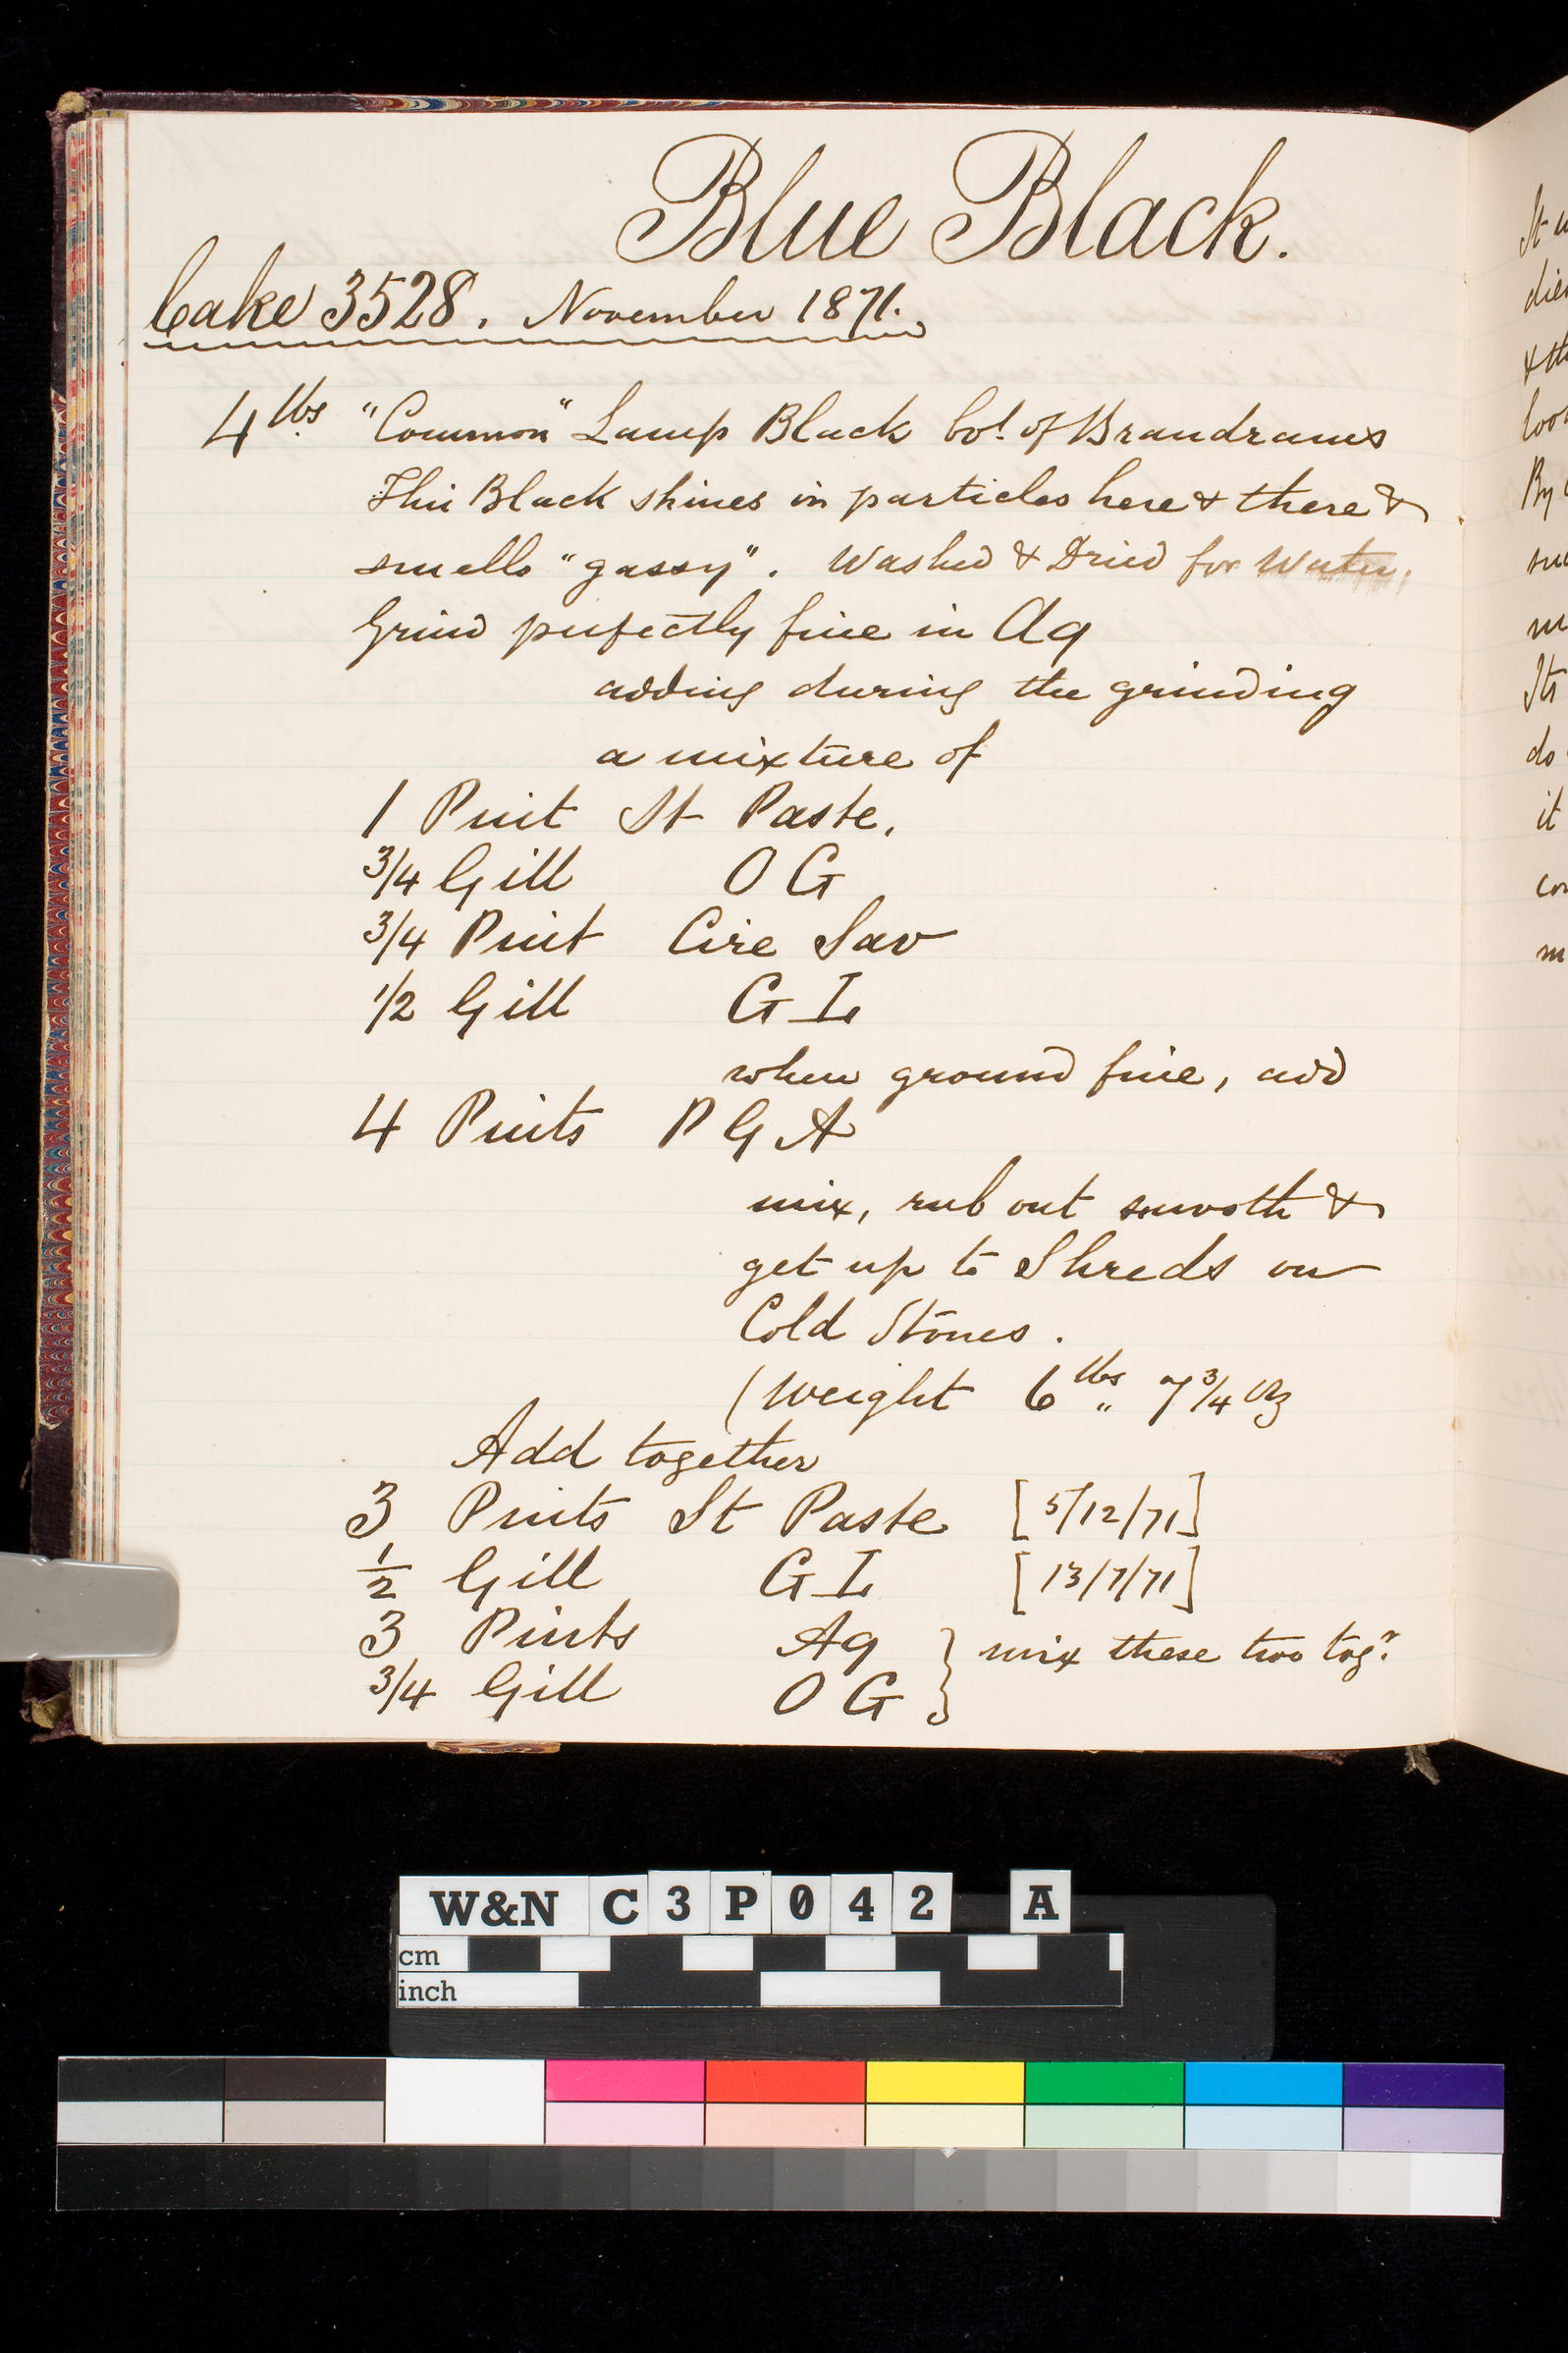 Blue Black.
Cake 3528. November 1871.
4 lbs "Common" Lamp Black bot. of Brandrams
This Black shines in particles here & there &
smells "gassy". Washed & Dried for Water.
Grind perfectly fine in Aq
adding during the grinding
a mixture of
1 Pint St Paste.
3/4 Gill O G
3/4 Pint Cire Sav
1/2 Gill G L
when ground fine, add
4 Pints P G A
mix, rub out smooth &
get up to Shreds on
Cold Stones.
(Weight 6 lbs " 7 3/4 Oz
Add together
3 Pints St Paste [5/12/71]
1/2 Gill G L [13/7/71]
3 Pints Aq } mix these two togr.
3/4 Gill O G
It
&
By
Its
do
it
W&N C3P042 A
cm
inch